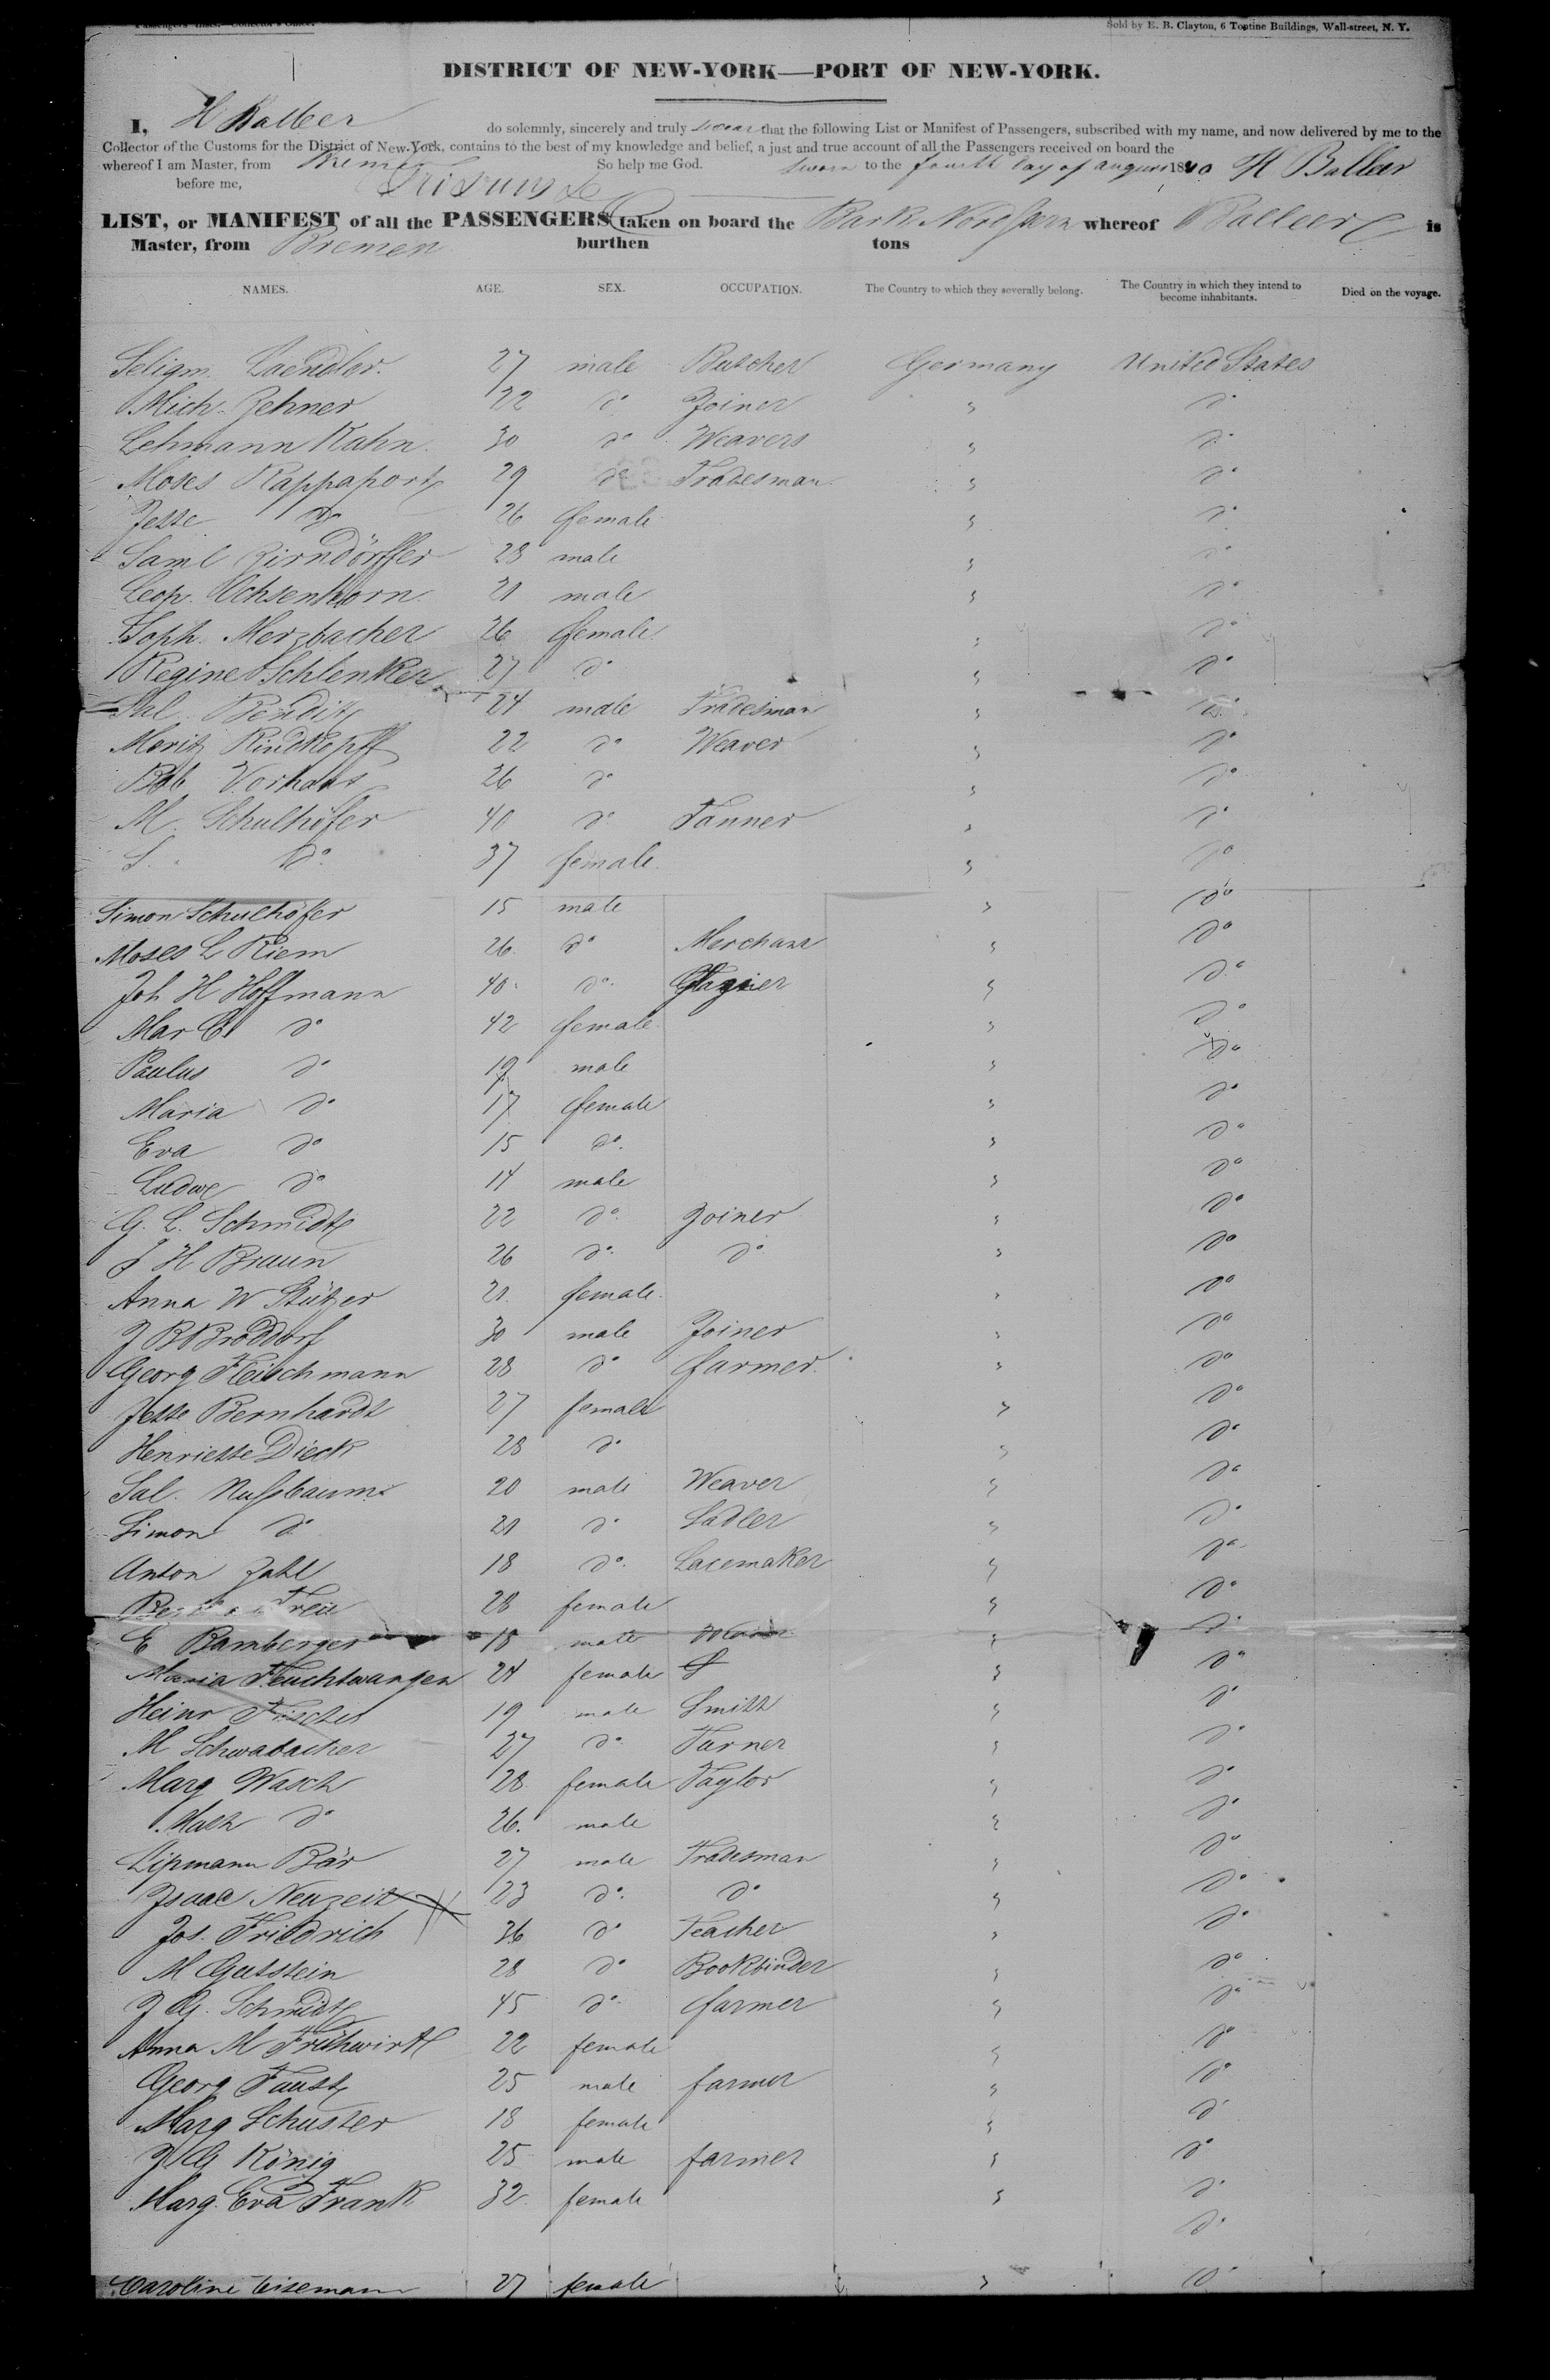 Passengers' Lines. Collector's Office.
Sold by E. B. Clayton, 6 Tontine Buildings, Wall-street, N. Y.
DISTRICT OF NEW-YORK—PORT OF NEW-YORK.
I, H Balleer do solemnly, sincerely and truly swear that the following List or Manifest of Passengers, subscribed with my name, and now delivered by me to the
Collector of the Customs for the District of New-York, contains to the best of my knowledge and belief, a just and true account of all the Passengers received on board the
whereof I am Master, from Bremen So help me God. Sworn to the fourth day of august 1840 H Balleer
before me,
LIST, or MANIFEST of all the PASSENGERS taken on board the Bark Nordstern whereof Balleer is
Master, from Bremen burthen tons
NAMES. AGE. SEX. OCCUPATION. The Country to which they severally belong. The Country in which they intend to become inhabitants. Died on the voyage.
Seligm. Laendler. 27 male Butcher Germany United States
Mich. Zehner 22 do Joiner " do
Lehmann Kahn. 30 do Weavers " do
Moses Rappaport 29 do Tradesman " do
Jette do 26 female " do
Saml Zirndörffer 28 male " do
Leop. Ochsenhorn. 21 male " do
Soph. Merzbacher 26 female " do
Regine Schlenker 27 do " do
Sal. Bendit 24 male Tradesman " do
Moritz Rindskopff 22 do Weaver " do
Bab Vorhaus 26 do " do
M. Schulhöfer 40 do Tanner " do
S. do 37 female " do
Simon Schulhöfer 15 male " do
Moses L Riem 26 do Merchant " do
Joh H Hoffmann 40 do Glazier " do
Mar C do 42 female " do
Paulus do 19 male " do
Maria do 17 female " do
Eva do 15 do " do
Ludw do 14 male " do
G. L. Schmidt 22 do Joiner " do
J H Braun 26 do do " do
Anna W Stützer 21 female " do
J B Broddorf 30 male Joiner " do
Georg Fleischmann 28 do farmer " do
Jette Bernhardt 27 female " do
Henriette Dieck 28 do " do
Sal. Nussbaum 20 male Weaver " do
Simon do 21 do Sadler " do
Anton Zahl 18 do Lacemaker " do
Freu 28 female " do
E Bamberger 18 male " do
Maria Feuchtwangen 24 female " do
Heinr Fischer 19 male Smith " do
M Schwabacher 27 do Turner " do
Marg Wasch 28 female Taylor " do
do 26. male " do
Lipmann Bär 27 male Tradesman " do
Isaac Neuzeit 23 do do " do
Jos. Friedrich 36 do Teacher " do
M Gutstein 28 do Bookbinder " do
J G. Schmidt 45 do farmer " do
Anna M Frühwirth 22 female " do
Georg Faust 25 male farmer " do
Marg Schuster 18 female " do
J G König 25 male farmer " do
Marg. Eva Frank 32 female " do
do
Caroline Eisemann 27 female " do